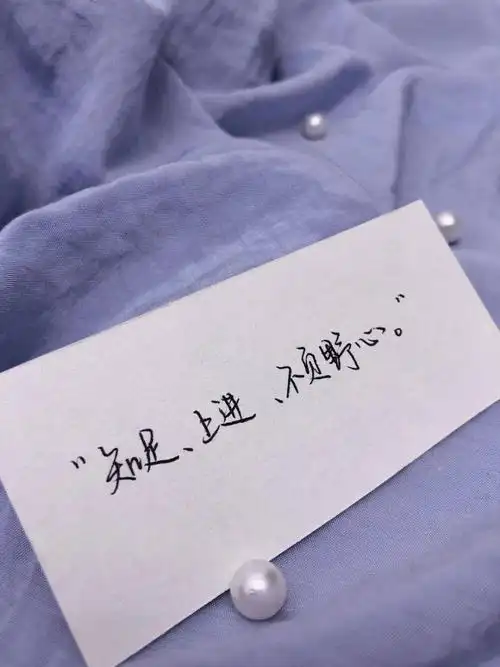 “知足、上进、不负野心。”